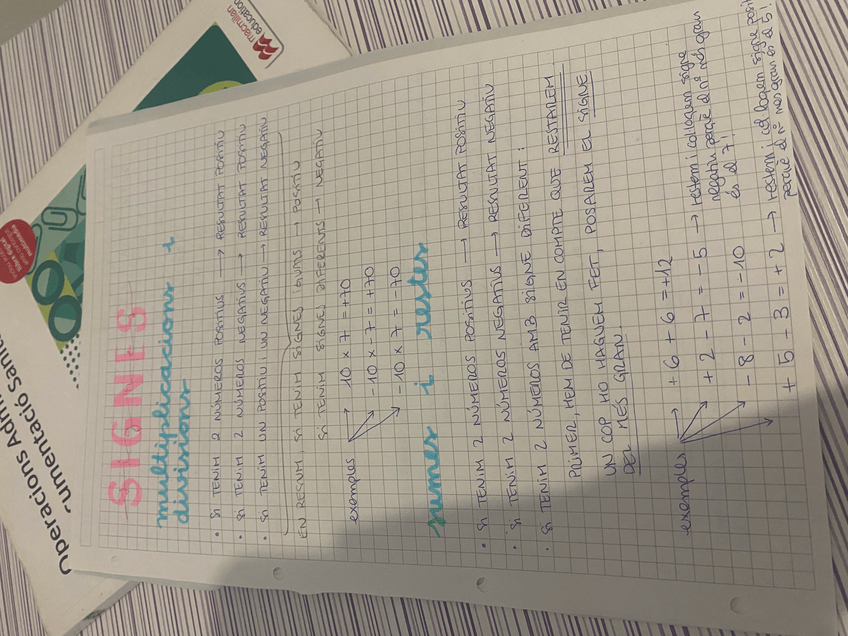 SIGNES
multiplicacions i
divisions
• SI TENIM 2 NÚMEROS POSITIUS → RESULTAT POSITIU
• SI TENIM 2 NÚMEROS NEGATIUS → RESULTAT POSITIU
• SI TENIM UN POSITIU I UN NEGATIU → RESULTAT NEGATIU
EN RESUM, SI TENIM SIGNES IGUALS → POSITIU
SI TENIM SIGNES DIFERENTS → NEGATIU
exemples → 10 x 7 = +70
-10 x -7 = +70
-10 x 7 = -70
sumes i restes
• SI TENIM 2 NÚMEROS POSITIUS → RESULTAT POSITIU
• SI TENIM 2 NÚMEROS NEGATIUS → RESULTAT NEGATIU
• SI TENIM 2 NÚMEROS AMB SIGNE DIFERENT:
PRIMER, HEM DE TENIR EN COMPTE QUE RESTAREM
UN COP HO HAGUEM FET, POSAREM EL SIGNE
DEL MÉS GRAN.
exemples → +6 + 6 = +12
+2 - 7 = -5 → restem i col·loquem signe
negatiu perquè el nº més gran
és el 7!
-8 - 2 = -10
+ 5 - 3 = +2 → restem i col·loquem signe posit
perquè el nº més gran és el 5!
macmillan
education
Operacions Admi
umentació Sanit